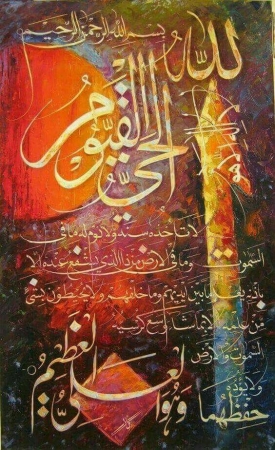 بسم الله الرحمن الرحيم
الله
لا إله إلا هو
الحي القيوم
لا تأخذه سنة ولا نوم له ما في
السموت وما في الارض من ذا الذي يشفع عنده الا
باذنه يعلم ما بين ايديهم وما خلفهم ولا يحيطون بشئ
من علمه الا بما شاء وسع كرسيه
السموت والارض
ولا يؤده
حفظهما وهو العلي العظيم